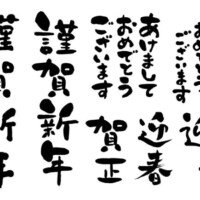 ございます
あけまして
おめでとう
ございます
謹賀新年
謹賀新年
迎春
賀正